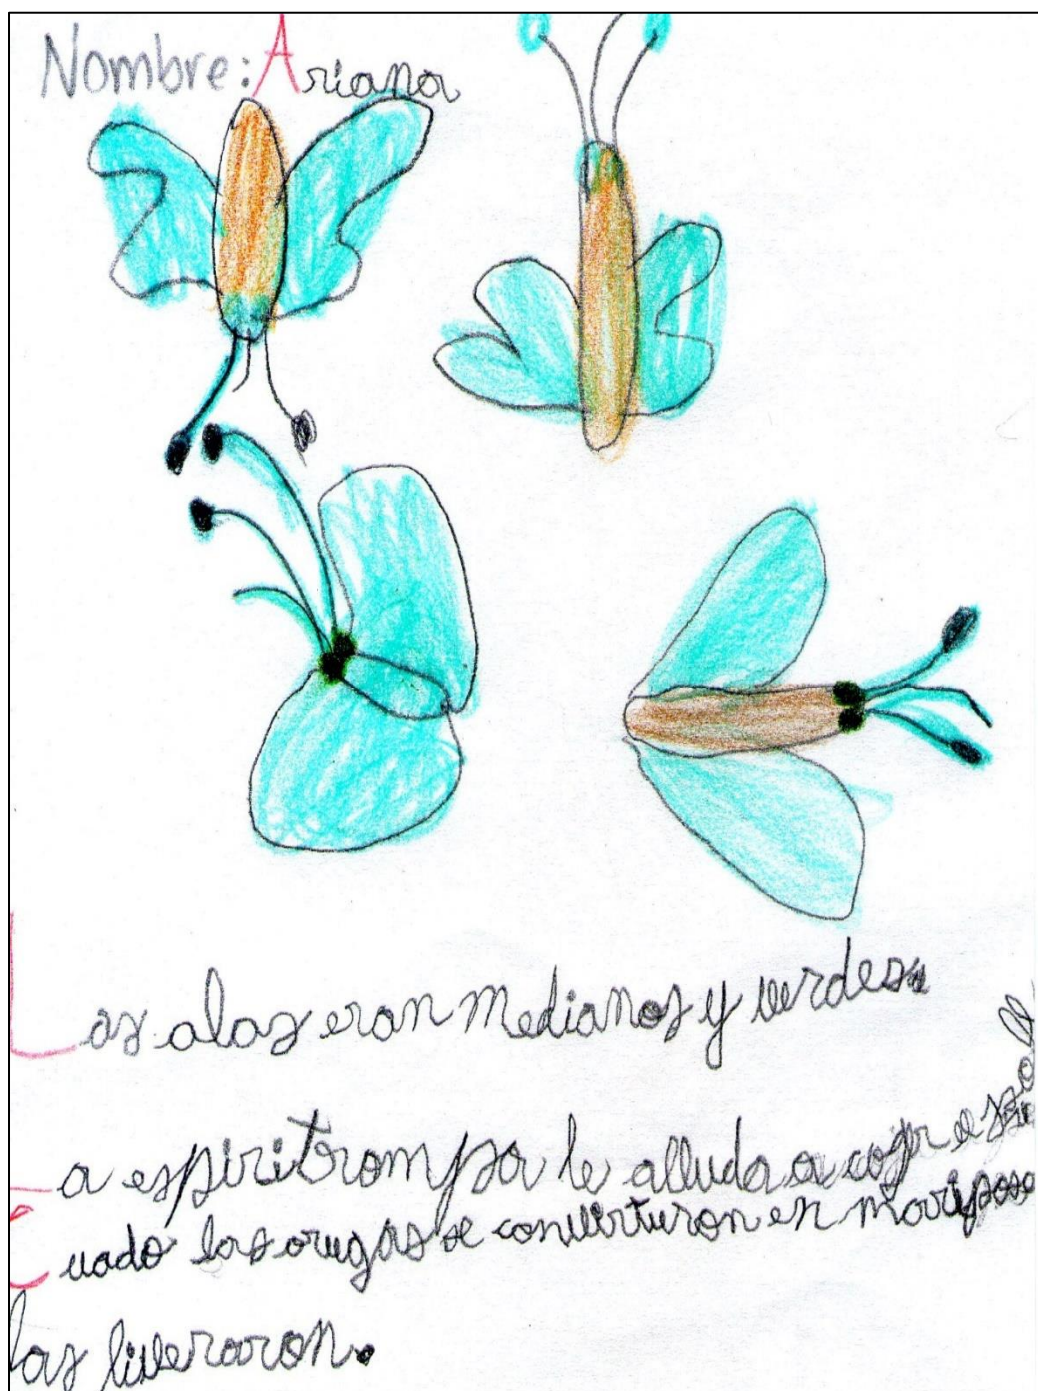 Nombre: Ariana
Las alas eran medianos y verdes
La espiritrompa le alluda a coger el
Cuado las orugas se convirturon en mariposa
las liveraron.